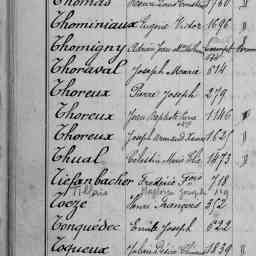 Thomas
Thominiaux Eugène Victor 1696
Thomigny Adrien Jean
Thoraval Joseph Marie 814
Thoreux Pierre Joseph 279
Thoreux Jean Baptiste 1146
Thoreux Joseph Armand 1625
Thual Célestin Marie 1473
Tiefanbacher Frédéric 718
Toëze Pierre François 352
Tonquédec Emile Joseph 622
Toqueux Julien Désiré 1839